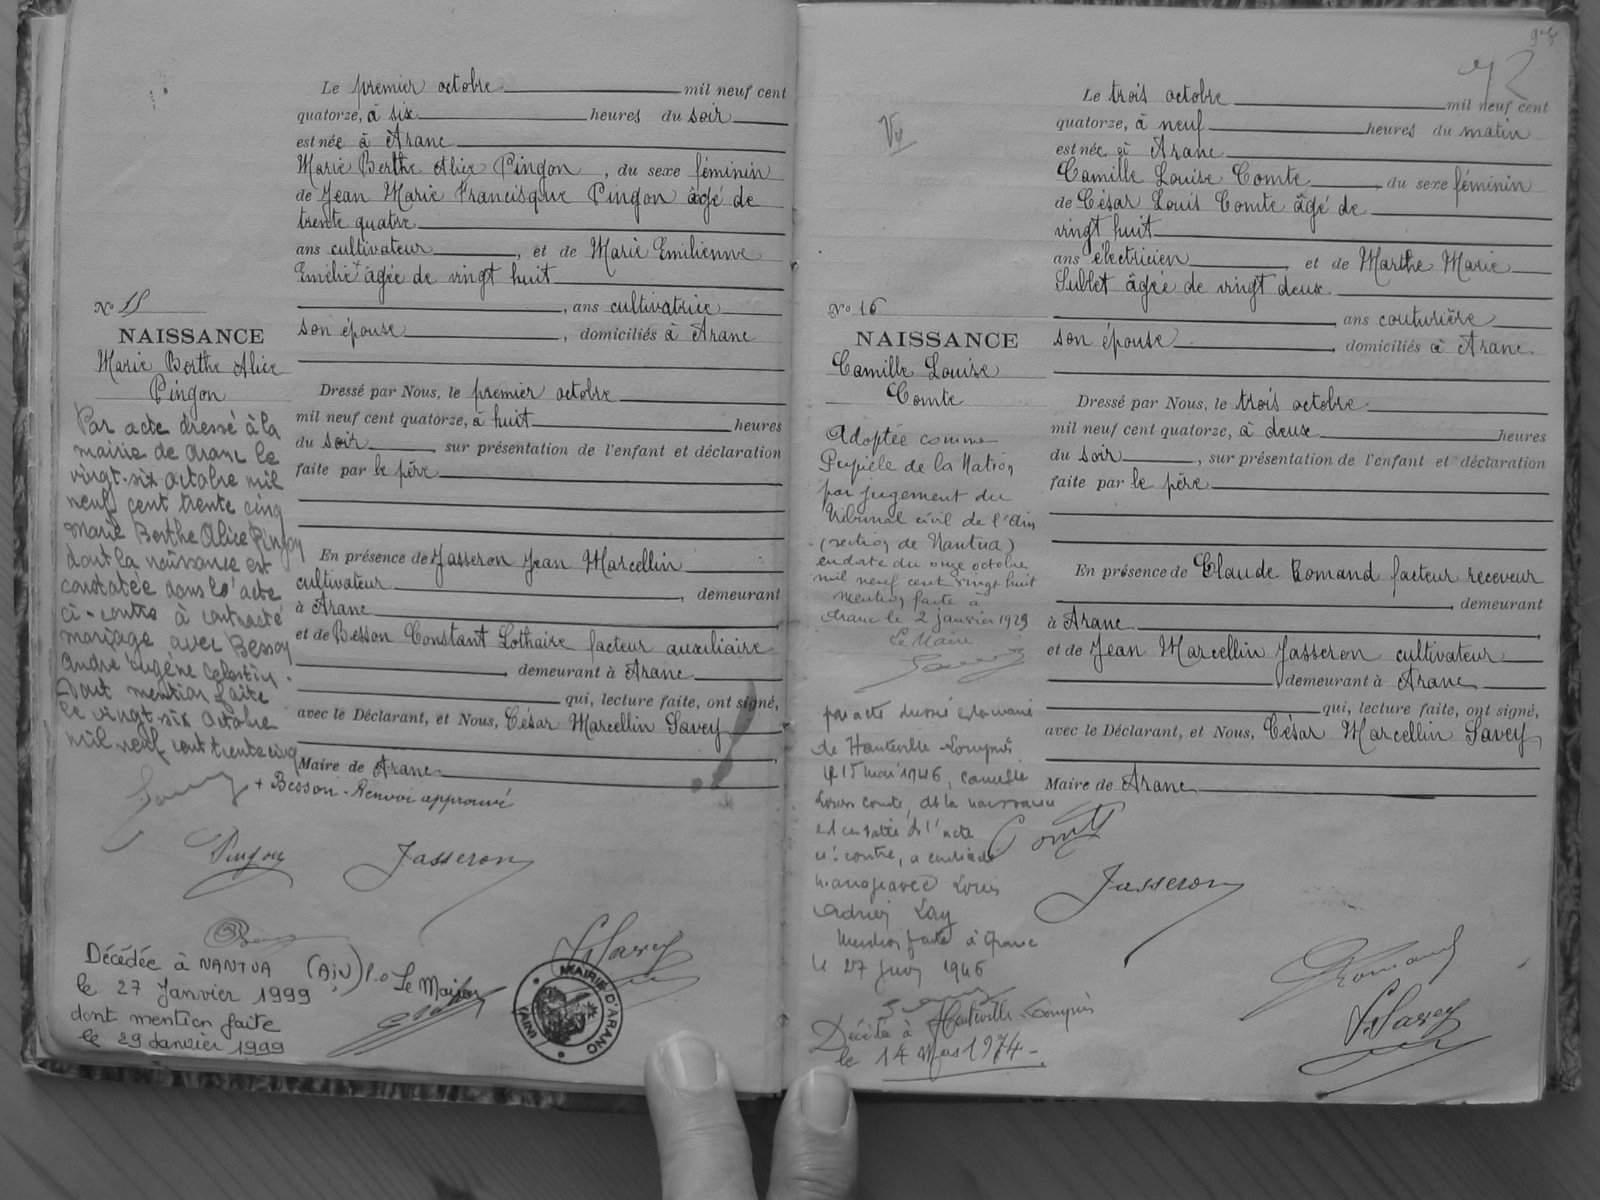 Le premier octobre mil neuf cent
quatorze, à six heures du soir
est née à Aranc
Marie Berthe Alice Pingon, du sexe féminin
de Jean Marie Francisque Pingon âgé de
trente quatre
ans cultivateur, et de Marie Emilienne
Emélie + âgée de vingt huit
, ans cultivatrice
son épouse, domiciliés à Aranc
No 15
NAISSANCE
Marie Berthe Alice
Pingon
Dressé par Nous, le premier octobre
mil neuf cent quatorze, à huit heures
du soir, sur présentation de l'enfant et déclaration
faite par le père
En présence de Jasseron Jean Marcellin
cultivateur, demeurant
à Aranc
et de Besson Constant Lothaire facteur auxiliaire
demeurant à Aranc
qui, lecture faite, ont signé,
avec le Déclarant, et Nous, César Marcellin Savey
Maire de Aranc
+ Besson - Renvoi approuvé
Pingon Jasseron
Savey
Par acte dressé à la
mairie de Aranc le
vingt-six octobre mil
neuf cent trente cinq
Marie Berthe Alice Pingon
dont la naissance est
constatée dans l'acte
ci-contre à contracté
mariage avec Besson
André Eugène Celestin.
Dont mention faite
le vingt-six octobre
mil neuf cent trente cinq
Décédée à NANTUA (Ain)
le 27 Janvier 1999
dont mention faite
le 29 Janvier 1999
p.o Le Maire
MAIRIE D'ARANC
(AIN)
72
Le trois octobre mil neuf cent
quatorze, à neuf heures du matin
est née à Aranc
Camille Louise Comte, du sexe féminin
de César Louis Comte âgé de
vingt huit
ans électricien, et de Marthe Marie
Sublet âgée de vingt deux
, ans couturière
son épouse, domiciliés à Aranc
No 16
NAISSANCE
Camille Louise
Comte
Dressé par Nous, le trois octobre
mil neuf cent quatorze, à deux heures
du soir, sur présentation de l'enfant et déclaration
faite par le père
En présence de Claude Romand facteur receveur
, demeurant
à Aranc
et de Jean Marcellin Jasseron cultivateur
demeurant à Aranc
qui, lecture faite, ont signé,
avec le Déclarant, et Nous, César Marcellin Savey
Maire de Aranc
Comte
Jasseron
Romand
Savey
Adoptée comme
Pupille de la Nation
par jugement du
Tribunal civil de l'Ain
(section de Nantua)
en date du onze octobre
mil neuf cent vingt huit
mention faite à
Aranc le 2 janvier 1929
Le Maire
par acte dressé à la mairie
de Hauteville-Lompnès
le 15 mai 1946, Camille
Louise Comte, dt la naissance
est constatée ds l'acte
ci-contre, a contracté
mariage avec Louis
Adrien Lay
Mention faite à Aranc
le 27 juin 1946
Décédée à Hauteville-Lompnès
le 14 Mars 1974